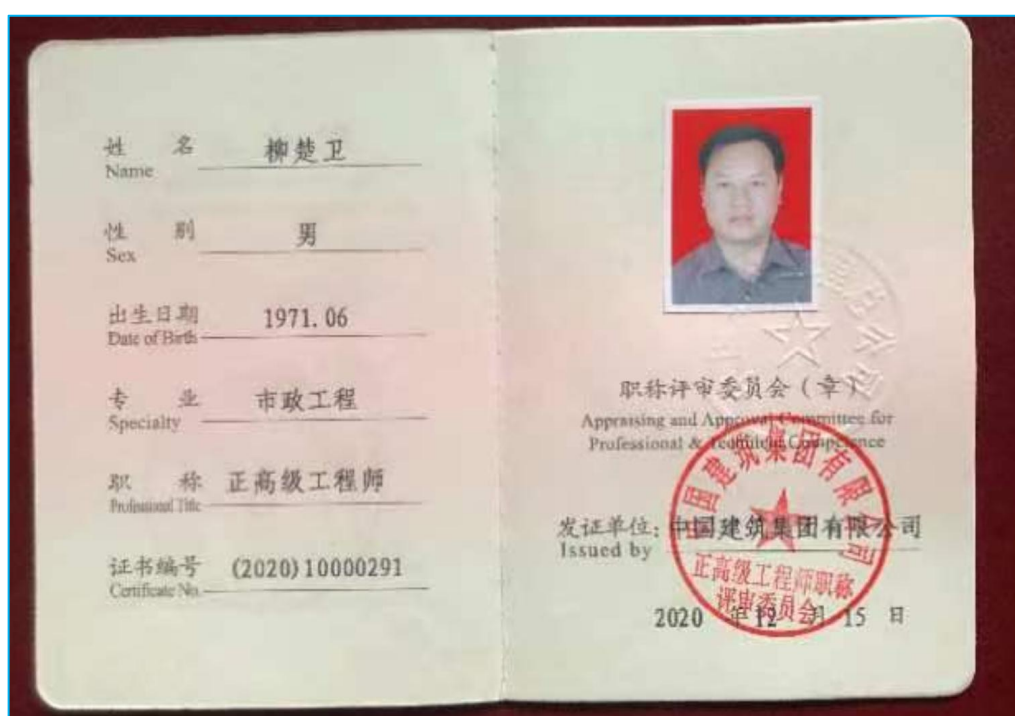 姓 名 柳楚卫
Name
性 别 男
Sex
出生日期 1971.06
Date of Birth
专 业 市政工程
Specialty
职 称 正高级工程师
Professional Title
证书编号 (2020)10000291
Certificate No.
职称评审委员会(章)
Appraising and Approval Committee for
Professional & Technical Competence
发证单位: 中国建筑集团有限公司
Issued by
2020 年 12 月 15 日
中国建筑集团有限公司
正高级工程师职称
评审委员会